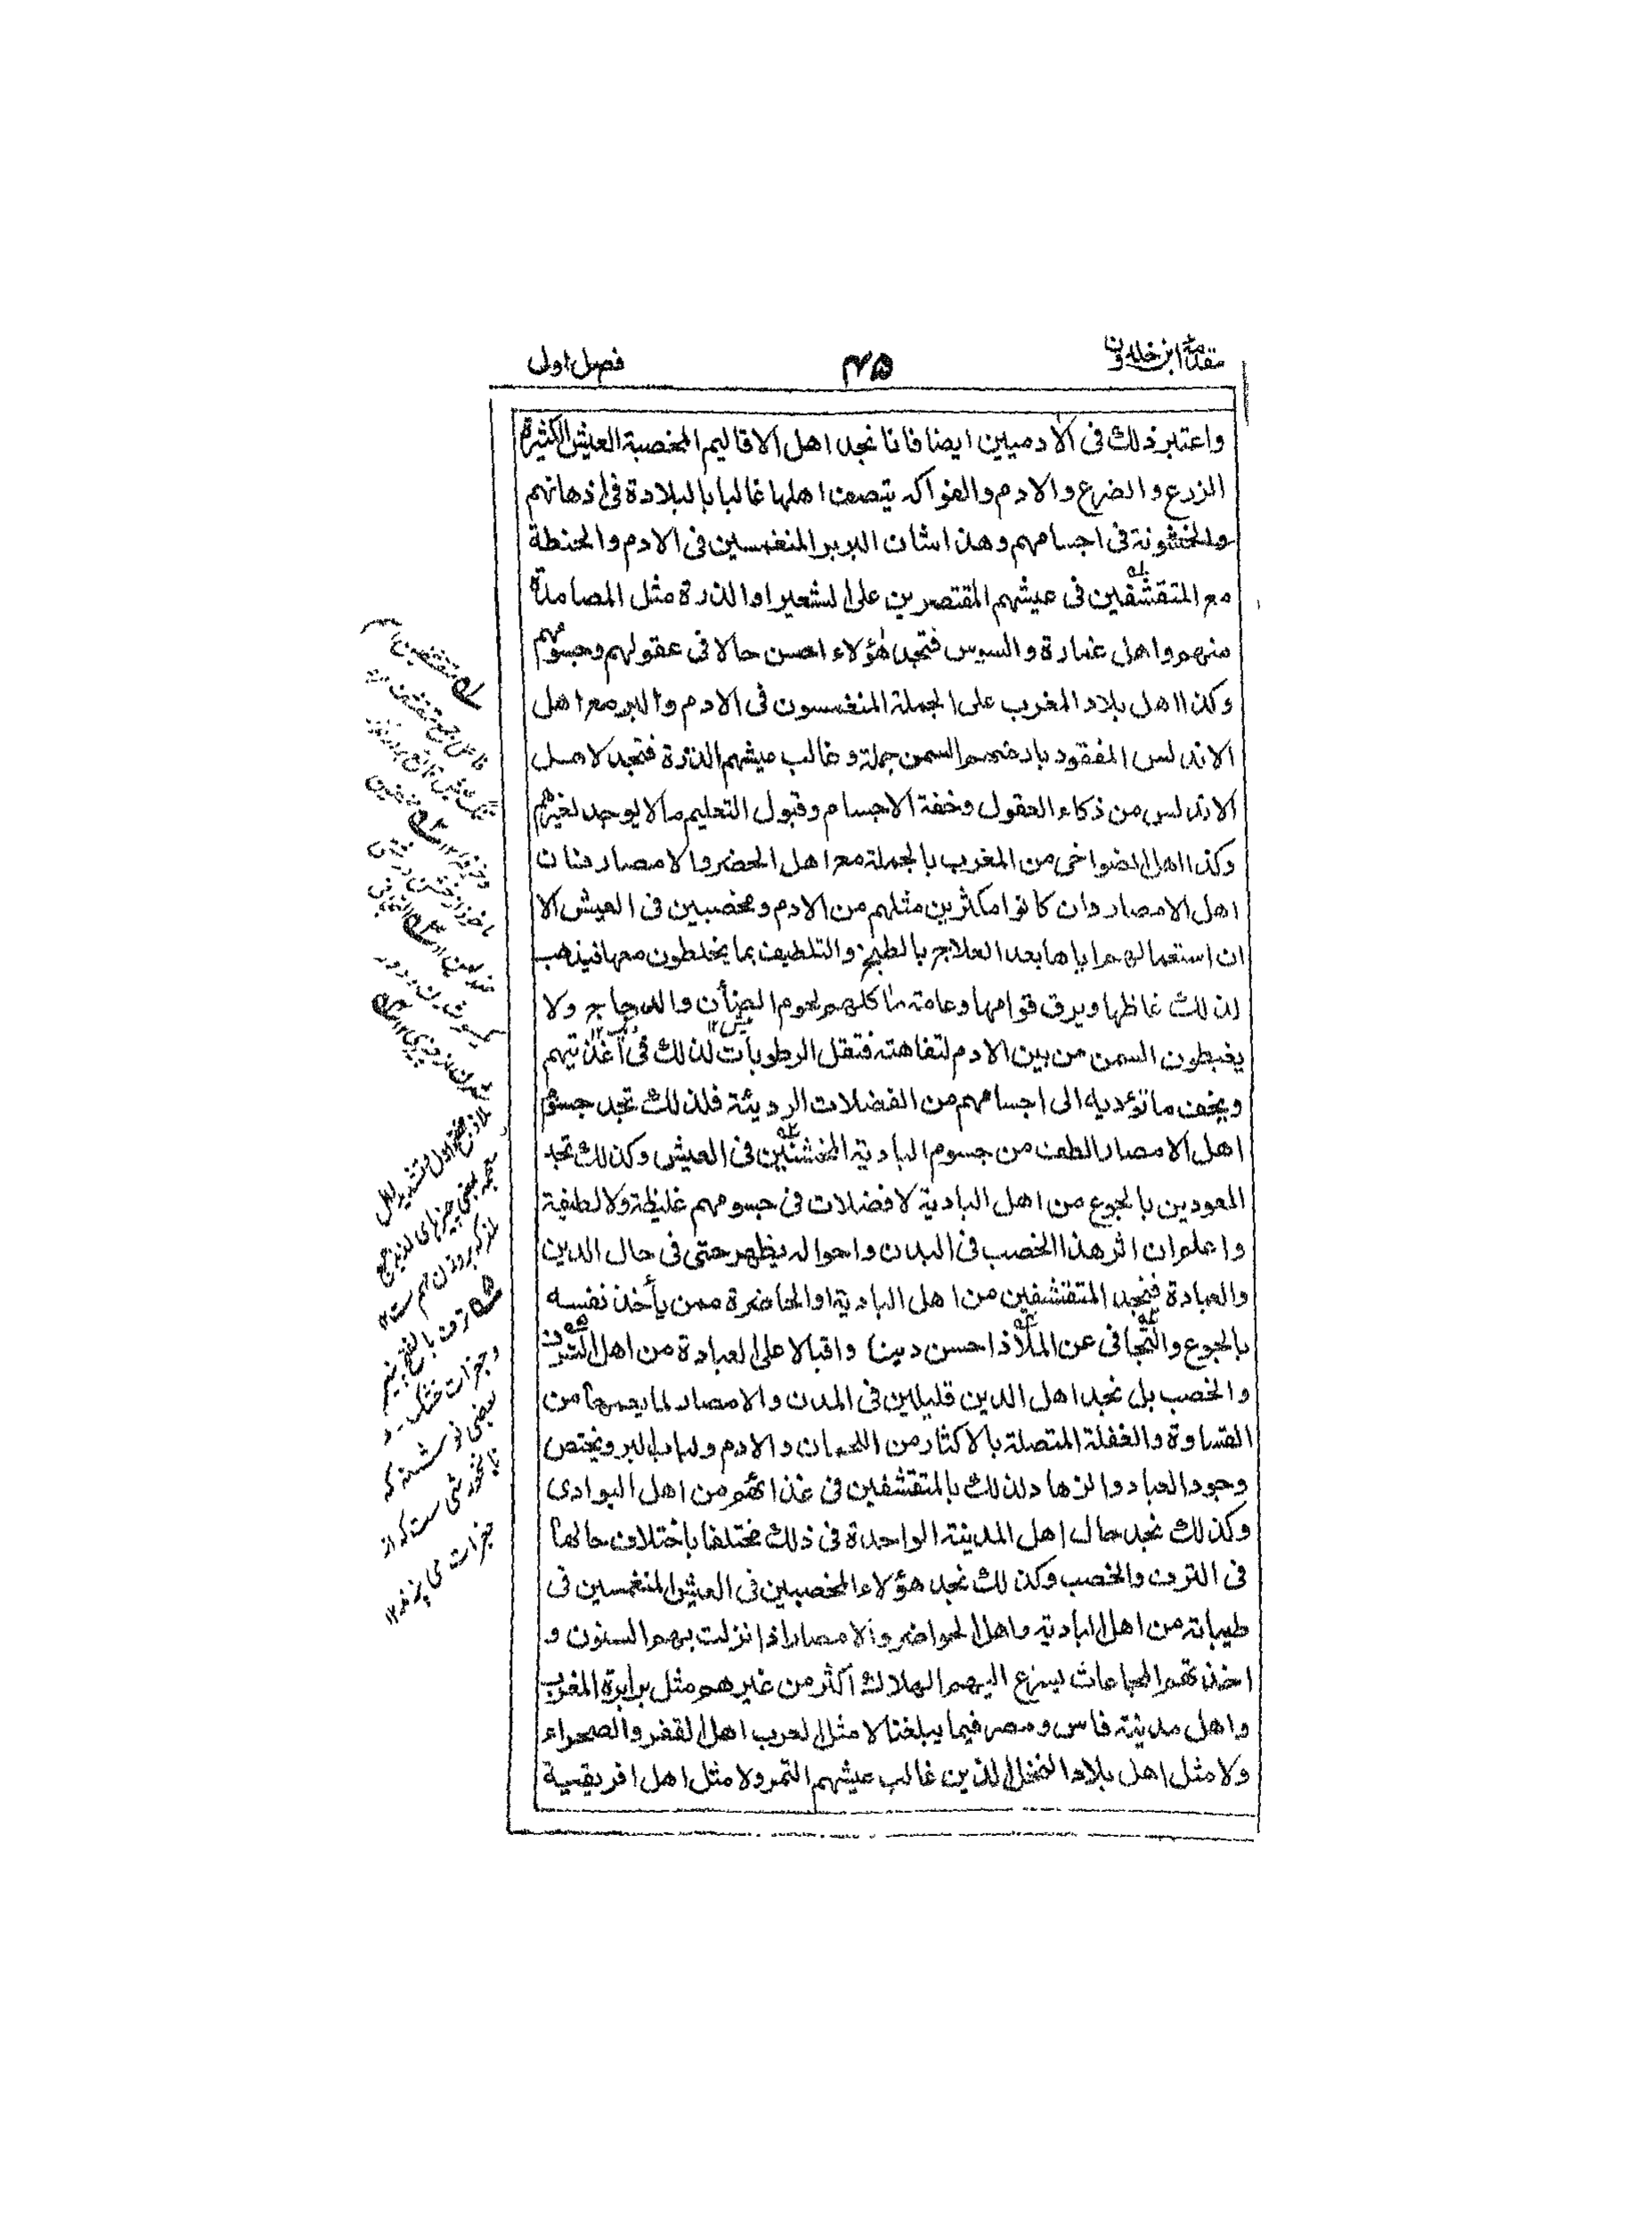 مقدمۀ ابن خلدون
۴۵
فصل اولی
واعتبر ذلك فى الادميين ايضا فانا نجد اهل الاقاليم المخصبة العيش الكثيرة
الزرع والضرع والادم والفواكه يتصف اهلها غالبا بالبلادة فى اذهانهم
والخشونة فى اجسامهم وهذا شان البربر المنغمسين فى الادم والحنطة
مع المتقشفين فى عيشهم المقتصرين على الشعير او الذرة مثل المصامدة
منهم واهل غمارة والسوس فتجد هؤلاء احسن حالا فى عقولهم وجسومهم
وكذا اهل بلاد المغرب على الجملة المنغمسون فى الادم والبر مع اهل
الاندلس المفقود بارضهم السمن جملة وغالب عيشهم الذرة فتجد لاهل
الاندلس من ذكاء العقول وخفة الاجسام وقبول التعليم مالا يوجد لغيرهم
وكذا اهل الضواحى من المغرب بالجملة مع اهل الحضر والامصار فان
اهل الامصار وان كانوا مكثرين مثلهم من الادم ومخصبين فى العيش الا
ان استعمالهم اياها بعد العلاج بالطبخ والتلطيف بما يخلطون معها فيذهب
لذلك غلظها ويرق قوامها وعامة ماكلهم لحوم الضأن والدجاج ولا
يغبطون السمن من بين الادم لتفاهته فتقل الرطوبات لذلك فى اغذيتهم
ويخف ما تؤديه الى اجسامهم من الفضلات الرديئة فلذلك تجد جسوم
اهل الامصار الطف من جسوم البادية المخشنين فى العيش وكذلك تجد
المعودين بالجوع من اهل البادية لا فضلات فى جسومهم غليظة ولا لطيفة
واعلم ان اثر هذا الخصب فى البدن واحواله يظهر حتى فى حال الدين
والعبادة فنجد المتقشفين من اهل البادية او الحاضرة ممن يأخذ نفسه
بالجوع والتجافى عن الملاذ احسن دينا واقبالا على العبادة من اهل الترف
والخصب بل نجد اهل الدين قليلين فى المدن والامصار لما يعمها من
القساوة والغفلة المتصلة بالاكثار من اللحمان والادم ولباب البر ويختص
وجود العباد والزهاد لذلك بالمتقشفين فى غذائهم من اهل البوادى
وكذلك نجد حال اهل المدينة الواحدة فى ذلك مختلفا باختلاف حالها
فى الترف والخصب وكذلك نجد هؤلاء المخصبين فى العيش المنغمسين فى
طيباته من اهل البادية واهل الحواضر والامصار اذا نزلت بهم السنون و
اخذتهم المجاعات يسرع اليهم الهلاك اكثر من غيرهم مثل برابرة المغرب
واهل مدينة فاس ومصر فيما يبلغنا لا مثل العرب اهل القفر والصحراء
ولا مثل اهل بلاد النخل الذين غالب عيشهم التمر ولا مثل اهل افريقية